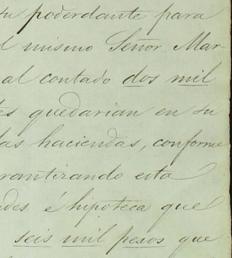 su poderdante para
el mismo Señor Mar
al contado dos mil
es quedarian en su
las haciendas, conforme
arantizando esta
ades, é hipoteca que
seis mil pesos que